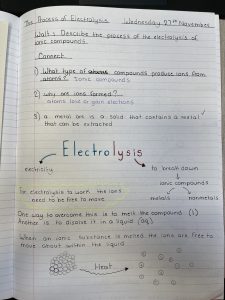 The Process of Electrolysis Wednesday 27th November
Walt: Describe the process of the electrolysis of
ionic compounds.
Connect
1) What type of atoms compounds produce ions from
atoms? Ionic compounds
2) why are ions formed?
atoms lose or gain electrons
3) a metal ore is a solid that contains a metal
that can be extracted
Electrolysis
electricity
to break down
ionic compounds
metals nonmetals
For electrolysis to work the ions
need to be free to move
One way to overcome this is to melt the compound (l)
Another is to disolve it in a liquid (aq)
When an ionic substance is melted the ions are free to
move about within the liquid
Heat